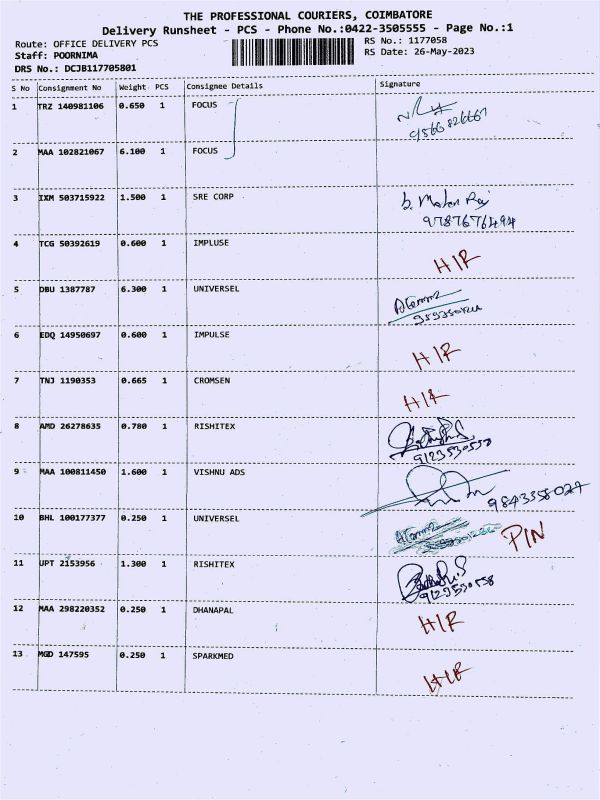 THE PROFESSIONAL COURIERS, COIMBATORE
Delivery Runsheet - PCS - Phone No.:0422-3505555 - Page No.:1
Route: OFFICE DELIVERY PCS RS No.: 1177058
Staff: POORNIMA RS Date: 26-May-2023
DRS No.: DCJB117705801
S No Consignment No Weight PCS Consignee Details Signature
1 TRZ 140981106 0.650 1 FOCUS
9566826667
2 MAA 102821067 6.100 1 FOCUS
3 IXM 503715922 1.500 1 SRE CORP
9787676494
4 TCG 50392619 0.600 1 IMPLUSE HIR
5 DBU 1387787 6.300 1 UNIVERSEL
6 EDQ 14950697 0.600 1 IMPULSE HIR
7 TNJ 1190353 0.665 1 CROMSEN HIR
8 AMD 26278635 0.780 1 RISHITEX
9123530558
9 MAA 100811450 1.600 1 VISHNU ADS 9843358027
10 BHL 100177377 0.250 1 UNIVERSEL PIN
11 UPT 2153956 1.300 1 RISHITEX
9123530558
12 MAA 298220352 0.250 1 DHANAPAL HIR
13 MGD 147595 0.250 1 SPARKMED HIR